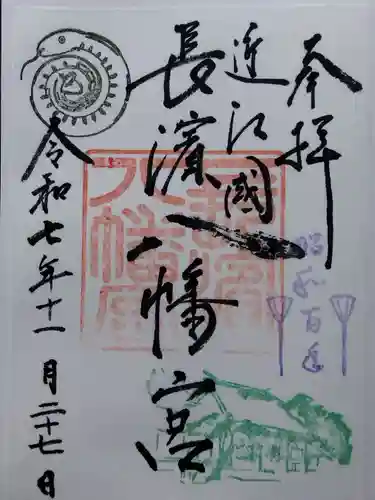 奉拝
昭和百年
近江國
長濱八幡宮
令和七年十一月二十七日
巳